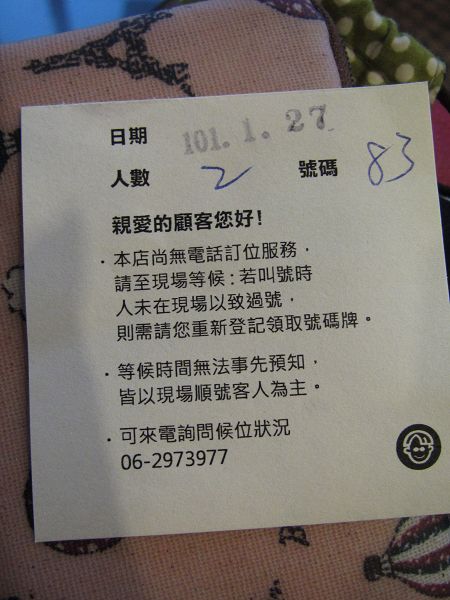 日期 101.1.27
人數 2 號碼 83
親愛的顧客您好!
·本店尚無電話訂位服務，
請至現場等候:若叫號時
人未在現場以致過號，
則需請您重新登記領取號碼牌。
·等候時間無法事先預知，
皆以現場順號客人為主。
·可來電詢問候位狀況
06-2973977